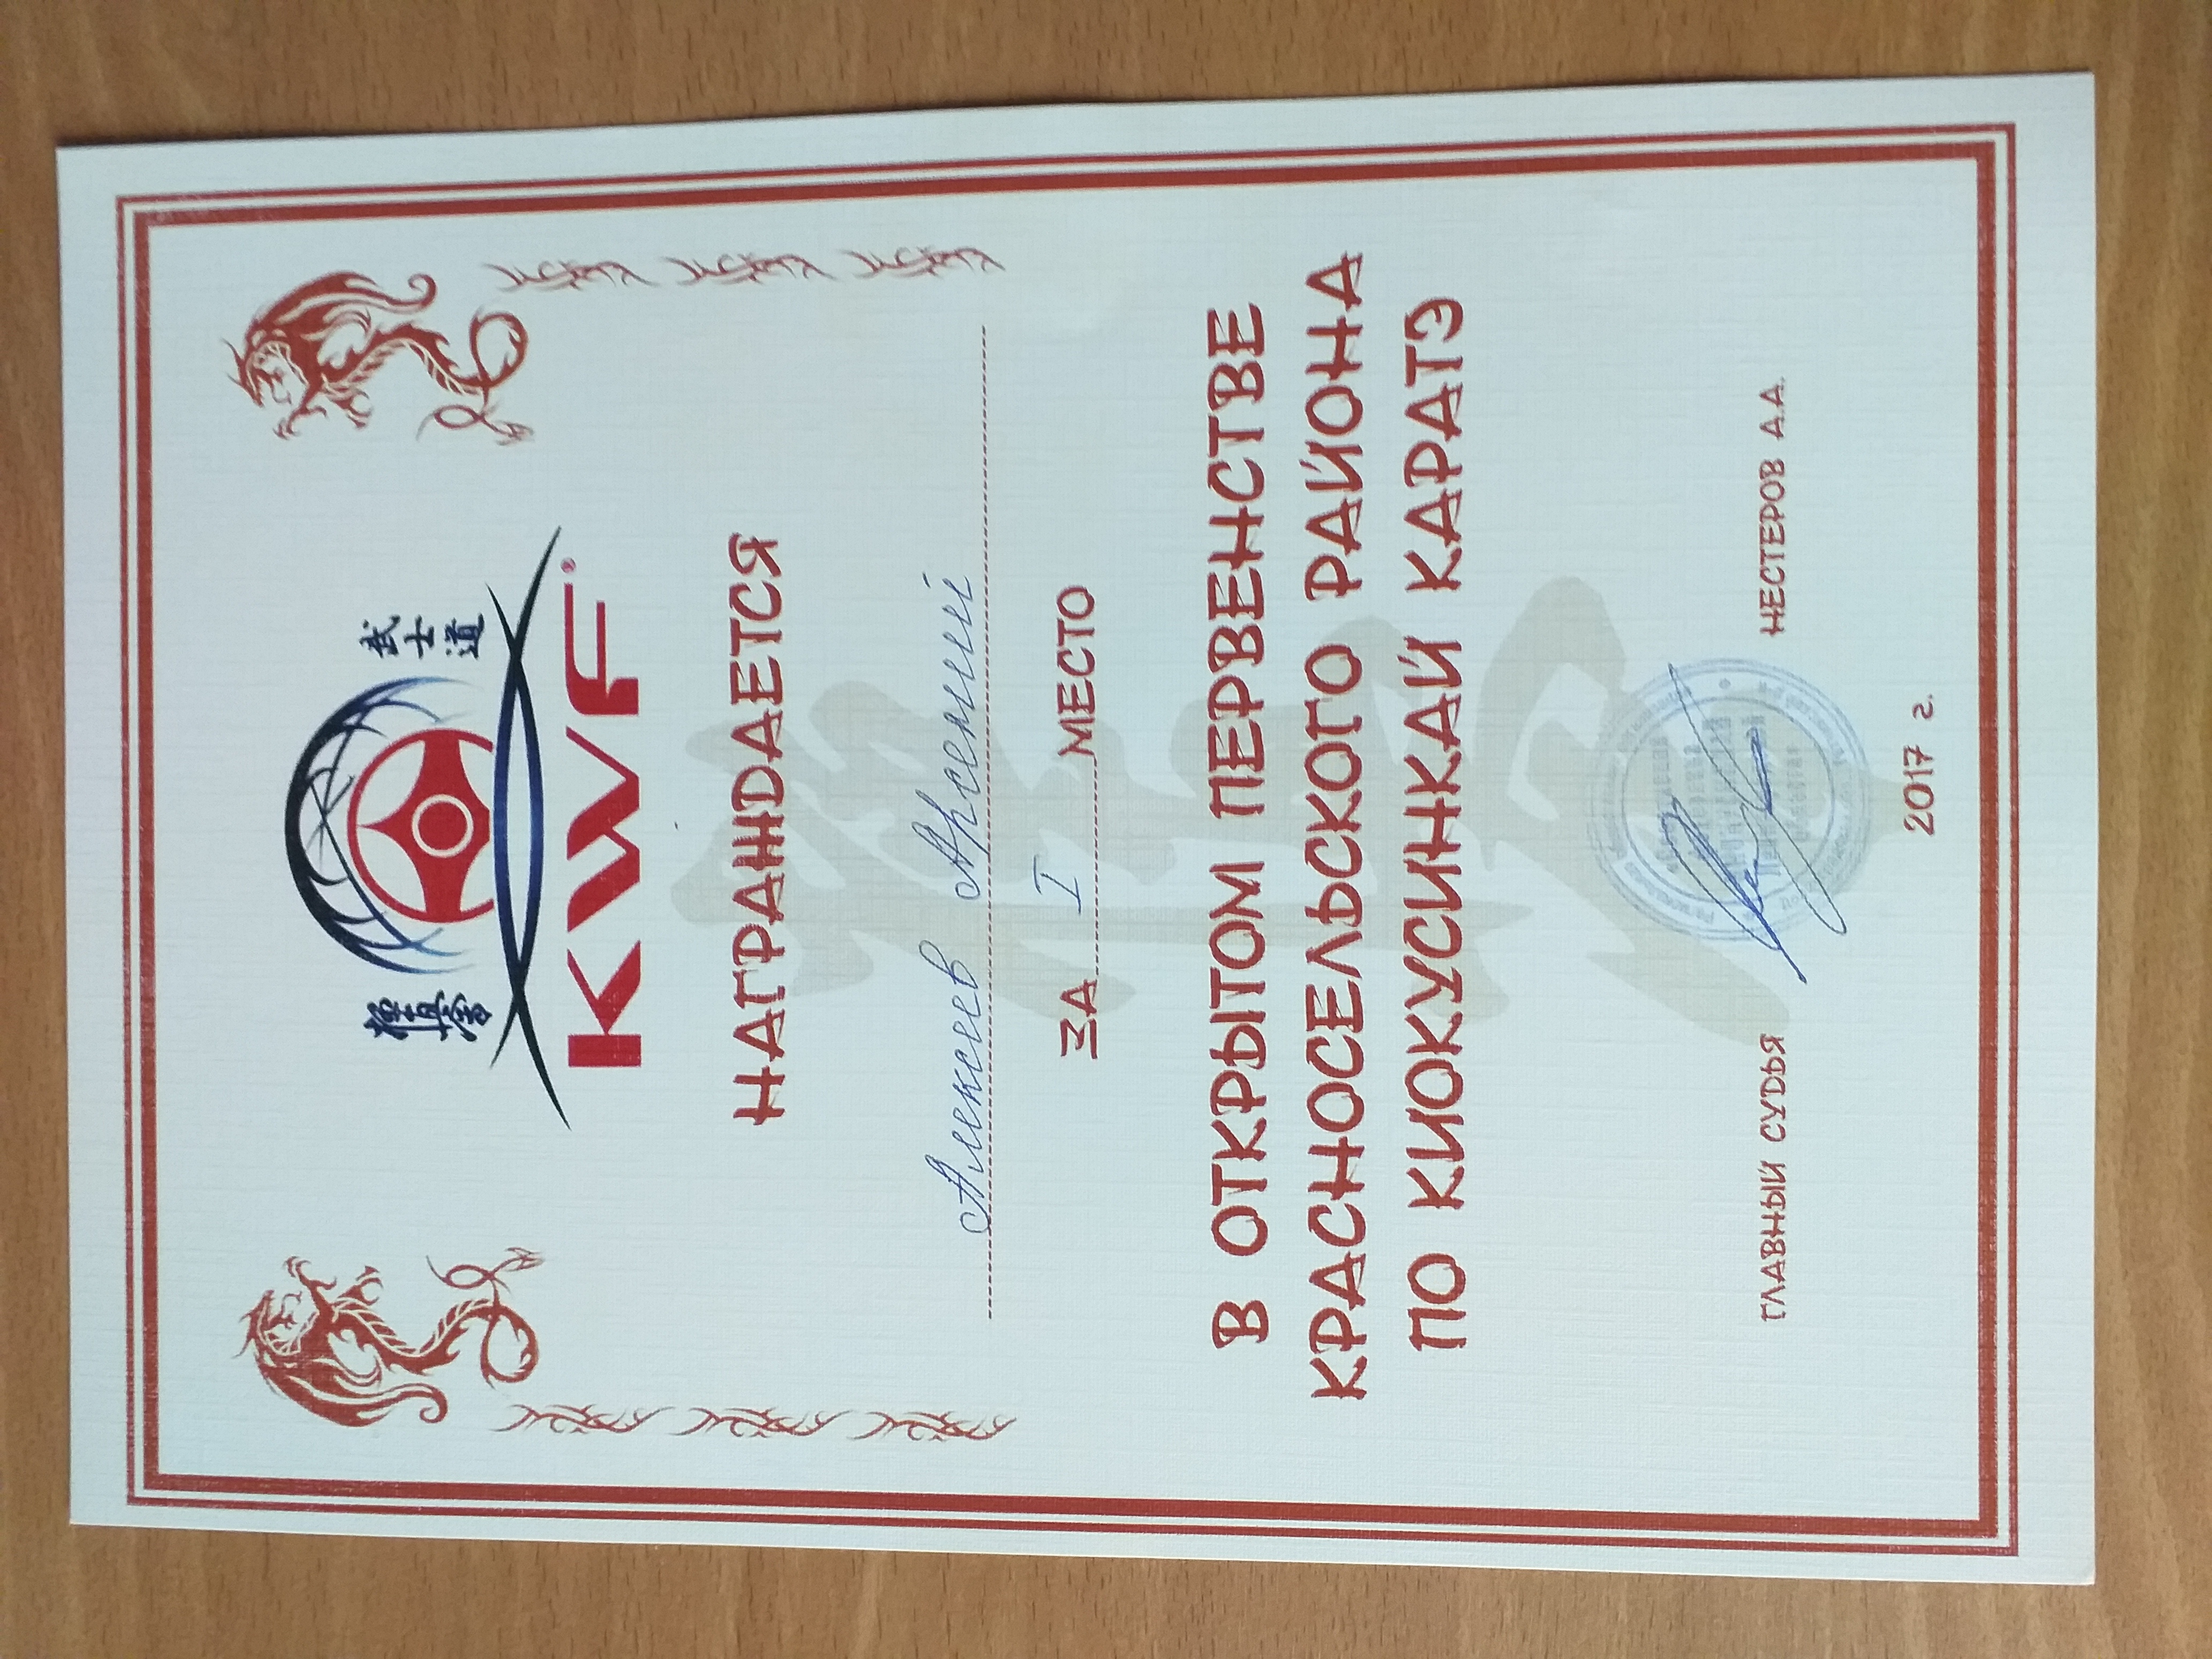 極真會
武士道
KWF®
НАГРАЖДАЕТСЯ
Алексеев Арсений
ЗА I МЕСТО
В ОТКРЫТОМ ПЕРВЕНСТВЕ
КРАСНОСЕЛЬСКОГО РАЙОНА
ПО КИОКУСИНКАЙ КАРАТЭ
ГЛАВНЫЙ СУДЬЯ НЕСТЕРОВ А.А.
2017 г.